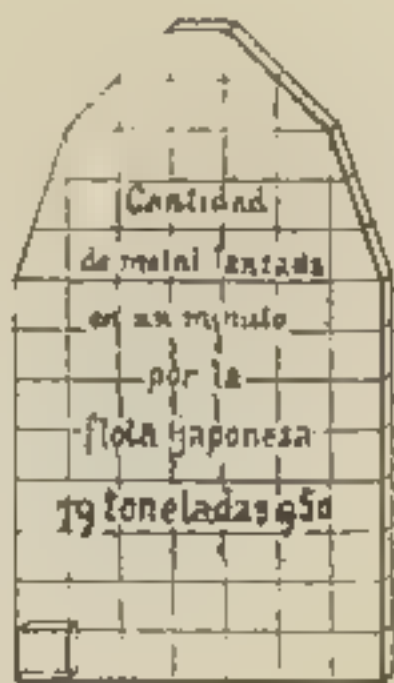 Cantidad
de metal lanzada
en un minuto
por la
flota japonesa
19 toneladas 950